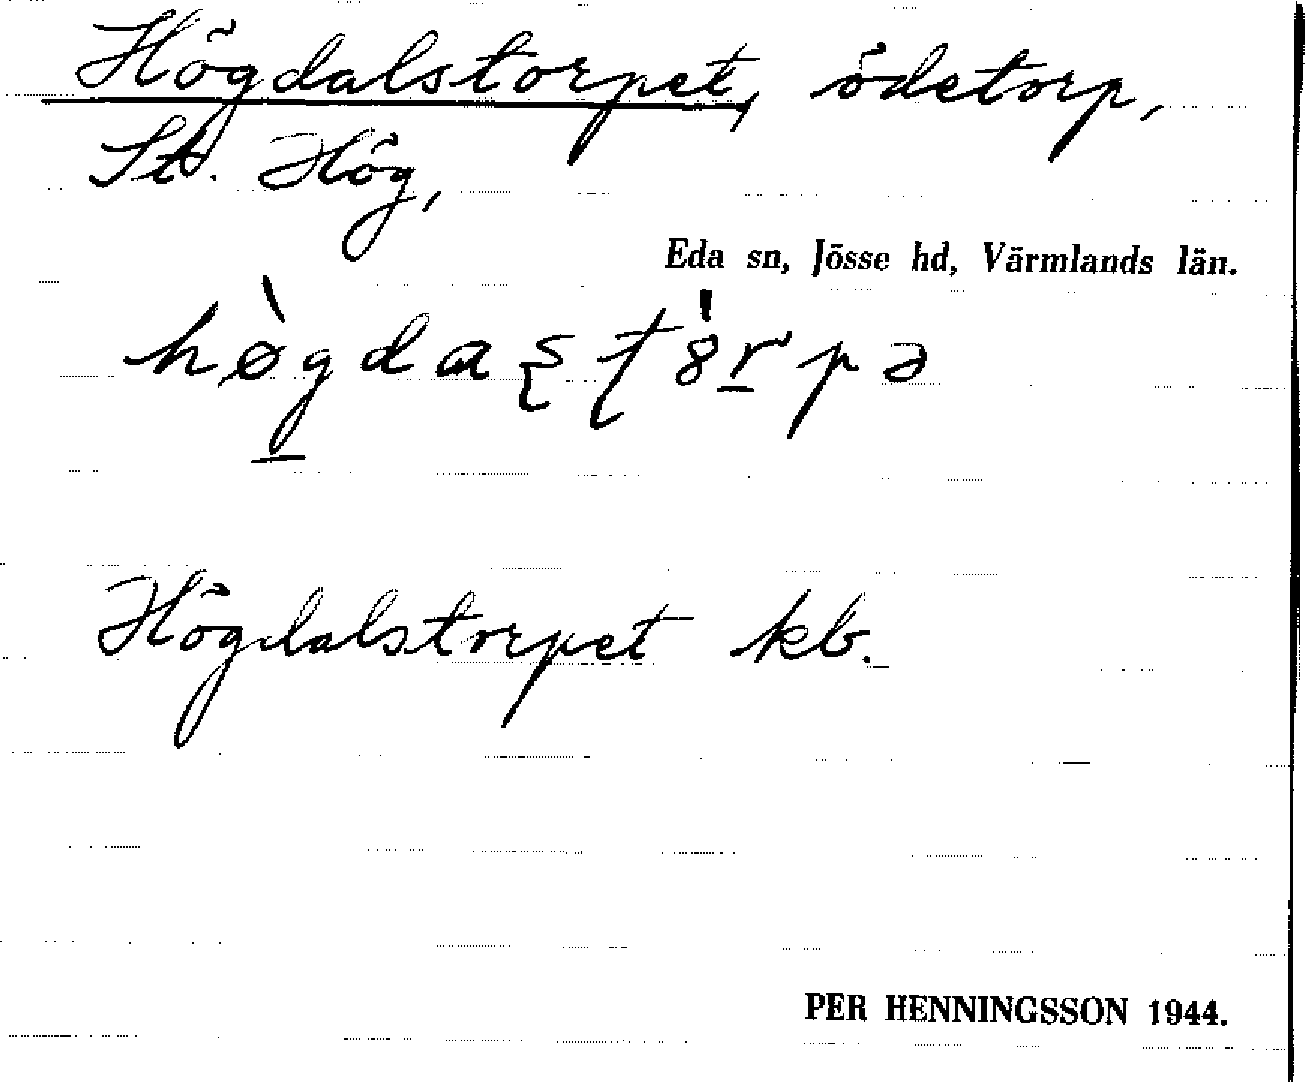 Högdalstorpet, ödetorp,
St. Hög,
Eda sn, Jösse hd, Värmlands län.
Högdalstorpet kb.
PER HENNINGSSON 1944.